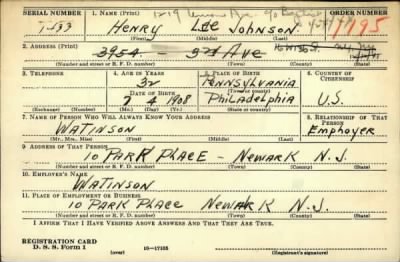 SERIAL NUMBER 1. NAME (Print) ORDER NUMBER
HENRY LEE JOHNSON 1195
(First) (Middle) (Last)
2. ADDRESS (Print)
3954 - 3rd AVE
(Number and street or R. F. D. number) (Town) (County) (State)
3. TELEPHONE 4. AGE IN YEARS 5. PLACE OF BIRTH 6. COUNTRY OF CITIZENSHIP
32 PENNSYLVANIA
DATE OF BIRTH PHILADELPHIA U.S.
7 4 1908
(Exchange) (No.) (Mo.) (Day) (Yr.) (State or country)
7. NAME OF PERSON WHO WILL ALWAYS KNOW YOUR ADDRESS 8. RELATIONSHIP OF THAT PERSON
WATINSON EMPHOYER
(Mr., Mrs., Miss) (First) (Middle) (Last)
9. ADDRESS OF THAT PERSON
10 PARK PLACE - NEWARK N.J.
(Number and street or R. F. D. number) (Town) (County) (State)
10. EMPLOYER'S NAME
WATINSON
11. PLACE OF EMPLOYMENT OR BUSINESS
10 PARK PLACE NEWARK N.J.
(Number and street or R. F. D. number) (Town) (County) (State)
I AFFIRM THAT I HAVE VERIFIED ABOVE ANSWERS AND THAT THEY ARE TRUE.
REGISTRATION CARD
D. S. S. Form 1 (over) 16-17105 (Registrant's signature)